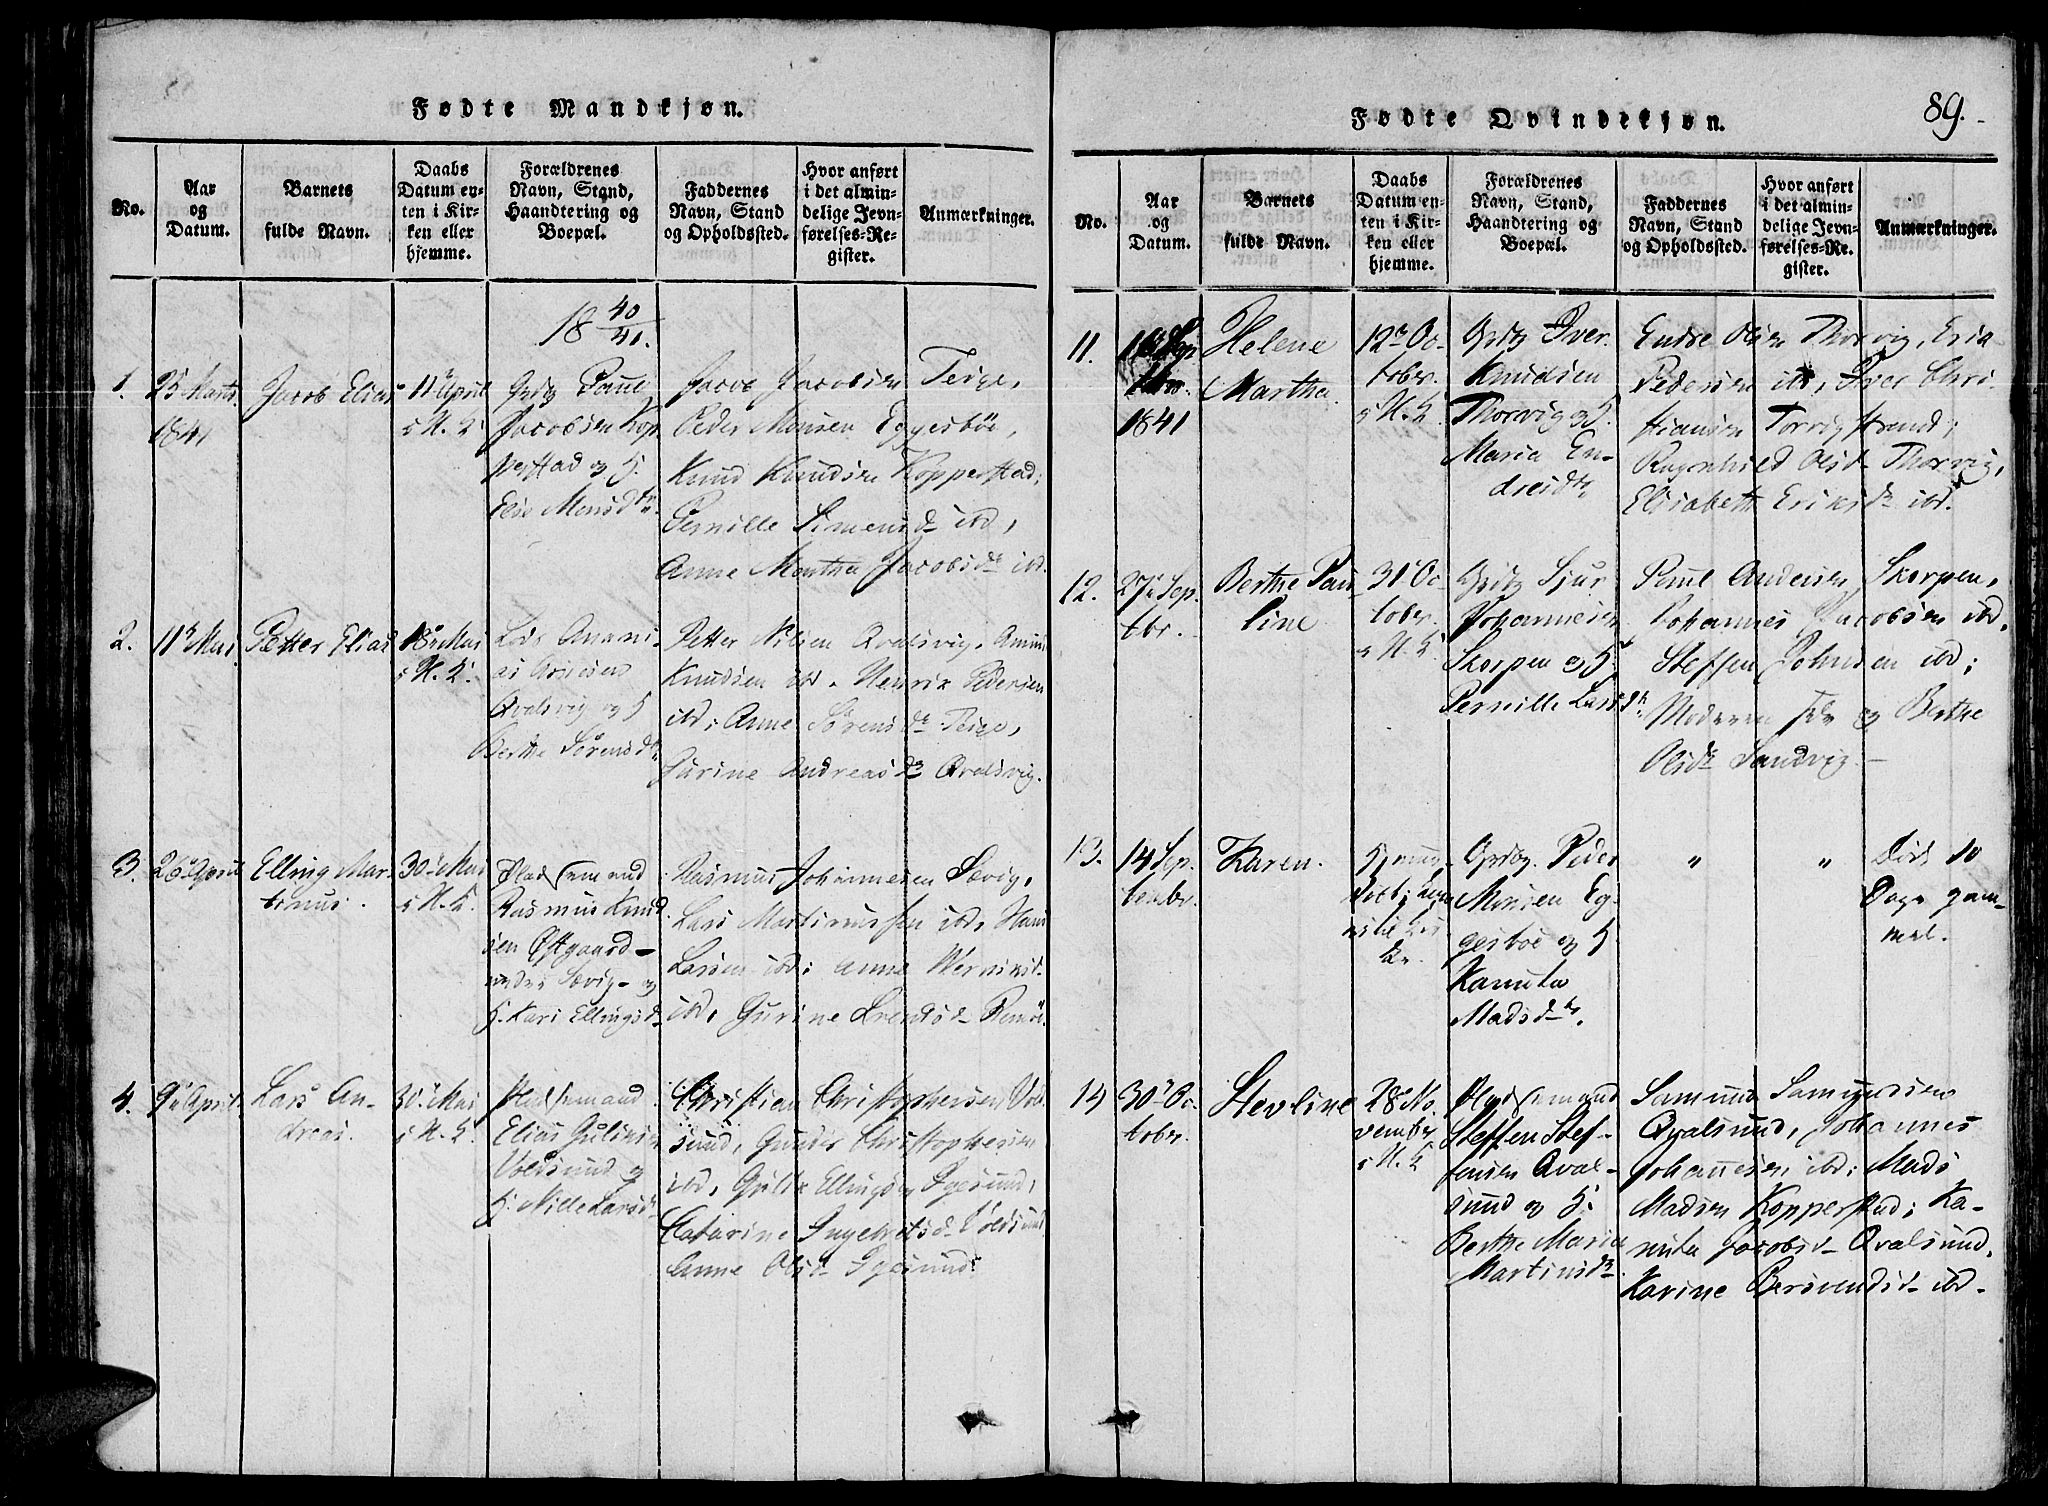 Fødte Mandkjøn.
No.
Aar
og
Datum.
Barnets
fulde Navn.
Daabs
Datum en-
ten i Kir-
ken eller
hjemme.
Forældrenes
Navn, Stand,
Haandtering og
Boepæl.
Faddernes
Navn, Stand
og Opholdssted.
Hvor anført
i det almin-
delige Jevn-
førelses-Re-
gister.
Anmærkninger.
18 40/41.
1.
25 Marts
1841
Jacob Elias
11 April
i H. K.
Grdbg Paul
Jacobsen Kop
perstad og H.
Else Monsdtr
Jacob Jacobsen Teige,
Peder Monsen Eggesböe,
Knud Knudsen Kopperstad;
Pernille Simensd ibd,
Anne Martha Jacobsdr ibd.
2.
11 Mai
Petter Elias
18 Mai
i H. K.
Anani-
as
Qvalsvig og H
Berthe Sörensdtr
Petter Nilsen Qvalsvig, Amund
Knudsen ibd. Henrik Pedersen
ibd; Anne Sörensdr Teige,
Jurine Andreasdr Qvalsvig.
3.
26 April
Elling Mar-
tinus.
30 Mai
i H. K.
Pladsemand
Rasmus Knud
sen Østgaard-
Sævig- og
H. Kari Ellingsd
Rasmus Johannesen Sævig,
Lars Martinussen ibd, Hans
Larsen ibd; Anne
ibd, Gurine Remöe.
4.
9 April
Lars An-
dreas.
30 Mai
i H. K.
Pladsemand
Elias Gulliksen
Voldsund og
H. Nille Larsd
Christian Christophersen Vold
sund, Gunder Christophersen
ibd, Gulik Ellingsen Igesund;
Catarine Ingebretsd Voldsund
Anne Olsd Igesund.
Fødte Qvindekjøn.
89.
No.
Aar
og
Datum.
Barnets
fulde Navn.
Daabs
Datum en-
ten i Kir-
ken eller
hjemme.
Forældrenes
Navn, Stand,
Haandtering og
Boepæl.
Faddernes
Navn, Stand
og Opholdssted.
Hvor anført
i det almin-
delige Jevn-
førelses-Re-
gister.
Anmærkninger.
11.
Sep
tbr.
1841
Helene
Martha
12 Oc-
tober
i H. K.
Grdbg Iver
Knudsen
Thorvig og H.
Maria En-
dreidtr
Endre Olsen Thorvig, Erik
Pedersen ibd, Iver Chri-
stiansen Torvigstrand;
Ragnhild Olsd Thorvig,
Elisabeth Eriksdr ibd.
12.
27 Sep
tbr.
Berthe Pau-
line
31 Oc
tober
i H. K.
Grdbg Sjur
Johannesen
Skorpen og H
Pernille Larsdtr
Paul Andersen Skorpen,
Johannes Jacobsen ibd,
Steffen Johnsen ibd;
Moderen og Berthe
Olsdr Sandvig.
13.
14 Sep
tember
Karen.
Grdbg. Peder
Monsen Eg-
gesboe og H
Kanuta
Madsdtr.
"
"
Död 10
Dage gam-
mel.
14
30 Oc
tober
Stevline
28 No-
vember
i H. K
Pladsemand
Steffen Stef-
fensen Qval-
sund og H.
Berthe Maria
Martinsdr
Samund Samundsen
Qvalsund, Johannes
Johannesen ibd; Mads
Madsen Kopperstad; Ka-
nuta Jacobsd Qvalsund,
Karine Bersvendsd ibd.